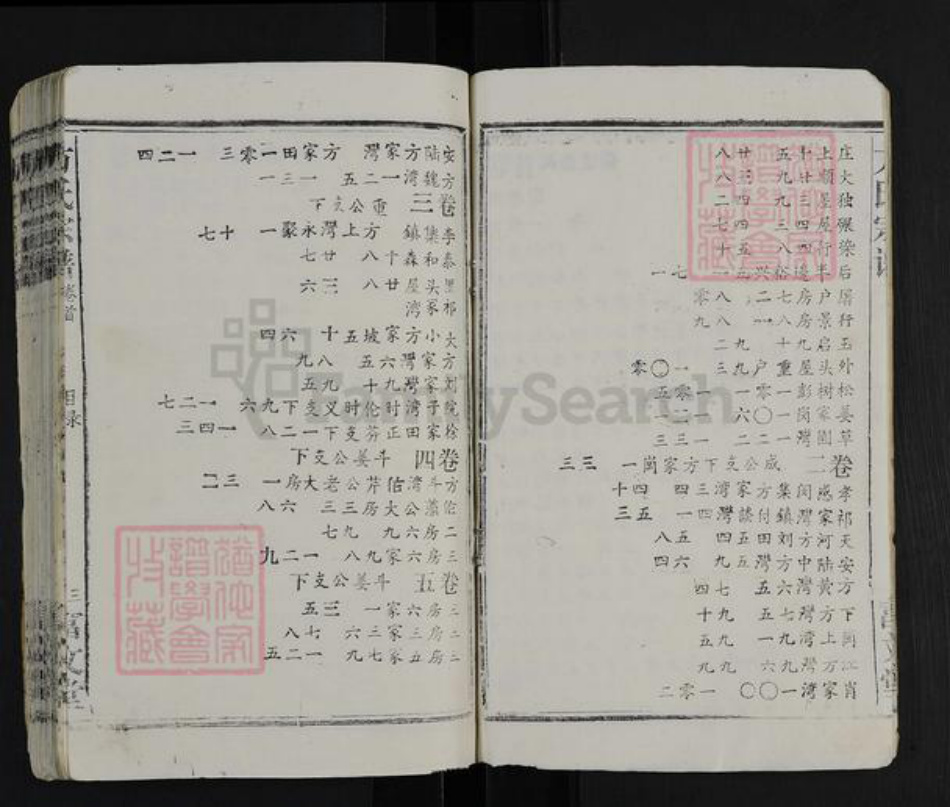 庄上十五 廿八
大顺廿九 三八
独屋三九 四二
碾屋四三 四七
染行四八 五十
后半边裕兴五一 七一
屠户房七二 八零
行景房八一 八九
玉启九十 九二
外头屋重户九三 一〇零
松树彭一零一 一零五
姜家岗一〇六 一二一
草園灣一二二 一三三
卷二 成公支下方家崗一 三三
孝感闵集方家湾三四 四十
祁家灣鎮付談灣四一 五三
天河方刘田五四 五八
安陆中方灣五九 六四
方黄灣六五 七四
下方灣七五 九十
闵上湾九一 九五
江万灣九六 九九
肖家湾一〇〇 一零二
安陆方家灣 方家田一零三 一二四
方魏湾一二五 一三一
卷三 重公支下
李集鎮 方上灣永蒙一 十七
泰和森十八 廿七
里头屋廿八 三六
祁家湾
大小方家坡五十 六四
方家灣六五 八九
刘家灣九十 九五
院子湾时伦时义支下九六 一二七
徐家田正芬支下一二八 一四三
卷四 斗姜公支下
方斗湾佑芹公老大房一 三二
佑藻公大房三三 六八
二房六九 九七
三房六家九八 一二九
卷五 斗姜公支下
三房六家一 三五
二房三家三六 七八
三房五家七九 一二五
方氏宗譜
卷首
目录
三
富文堂
FamilySearch